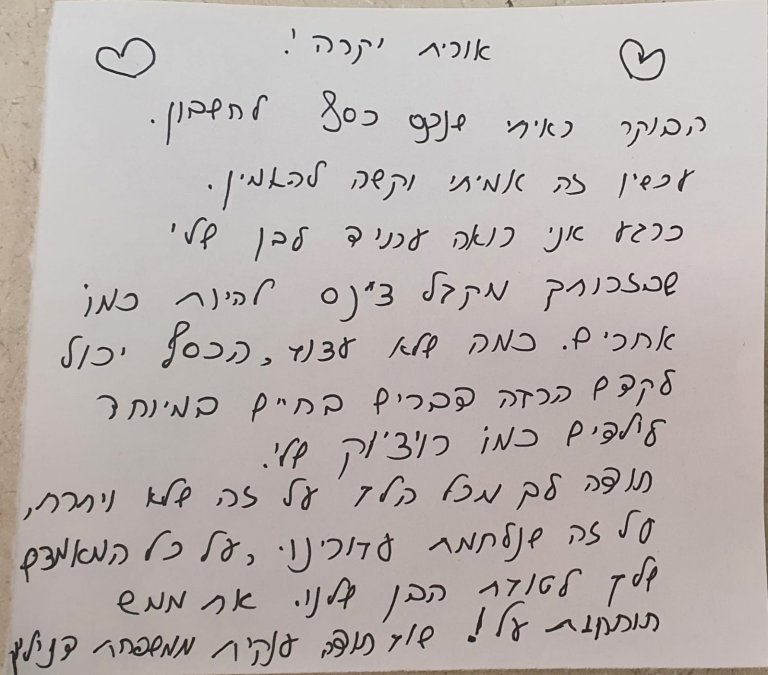 אורית יקרה!
הבוקר ראיתי שנכנס כסף לחשבון.
עכשיו זה אמיתי וקשה להאמין.
כרגע אני רואה עתיד לבן שלי
שבזכותך מקבל צ'אנס להיות כמו
אחרים. כמה שלא עצוב, הכסף יכול
לקדם הרבה דברים בחיים במיוחד
לילדים כמו רויצ'וק שלי.
תודה לך מכל הלב על זה שלא ויתרת,
על זה שנלחמת עבורינו, על כל המאמצים
שלך לטובת הבן שלנו. את ממש
תותחית על! שוב תודה ענקית ממשפחת